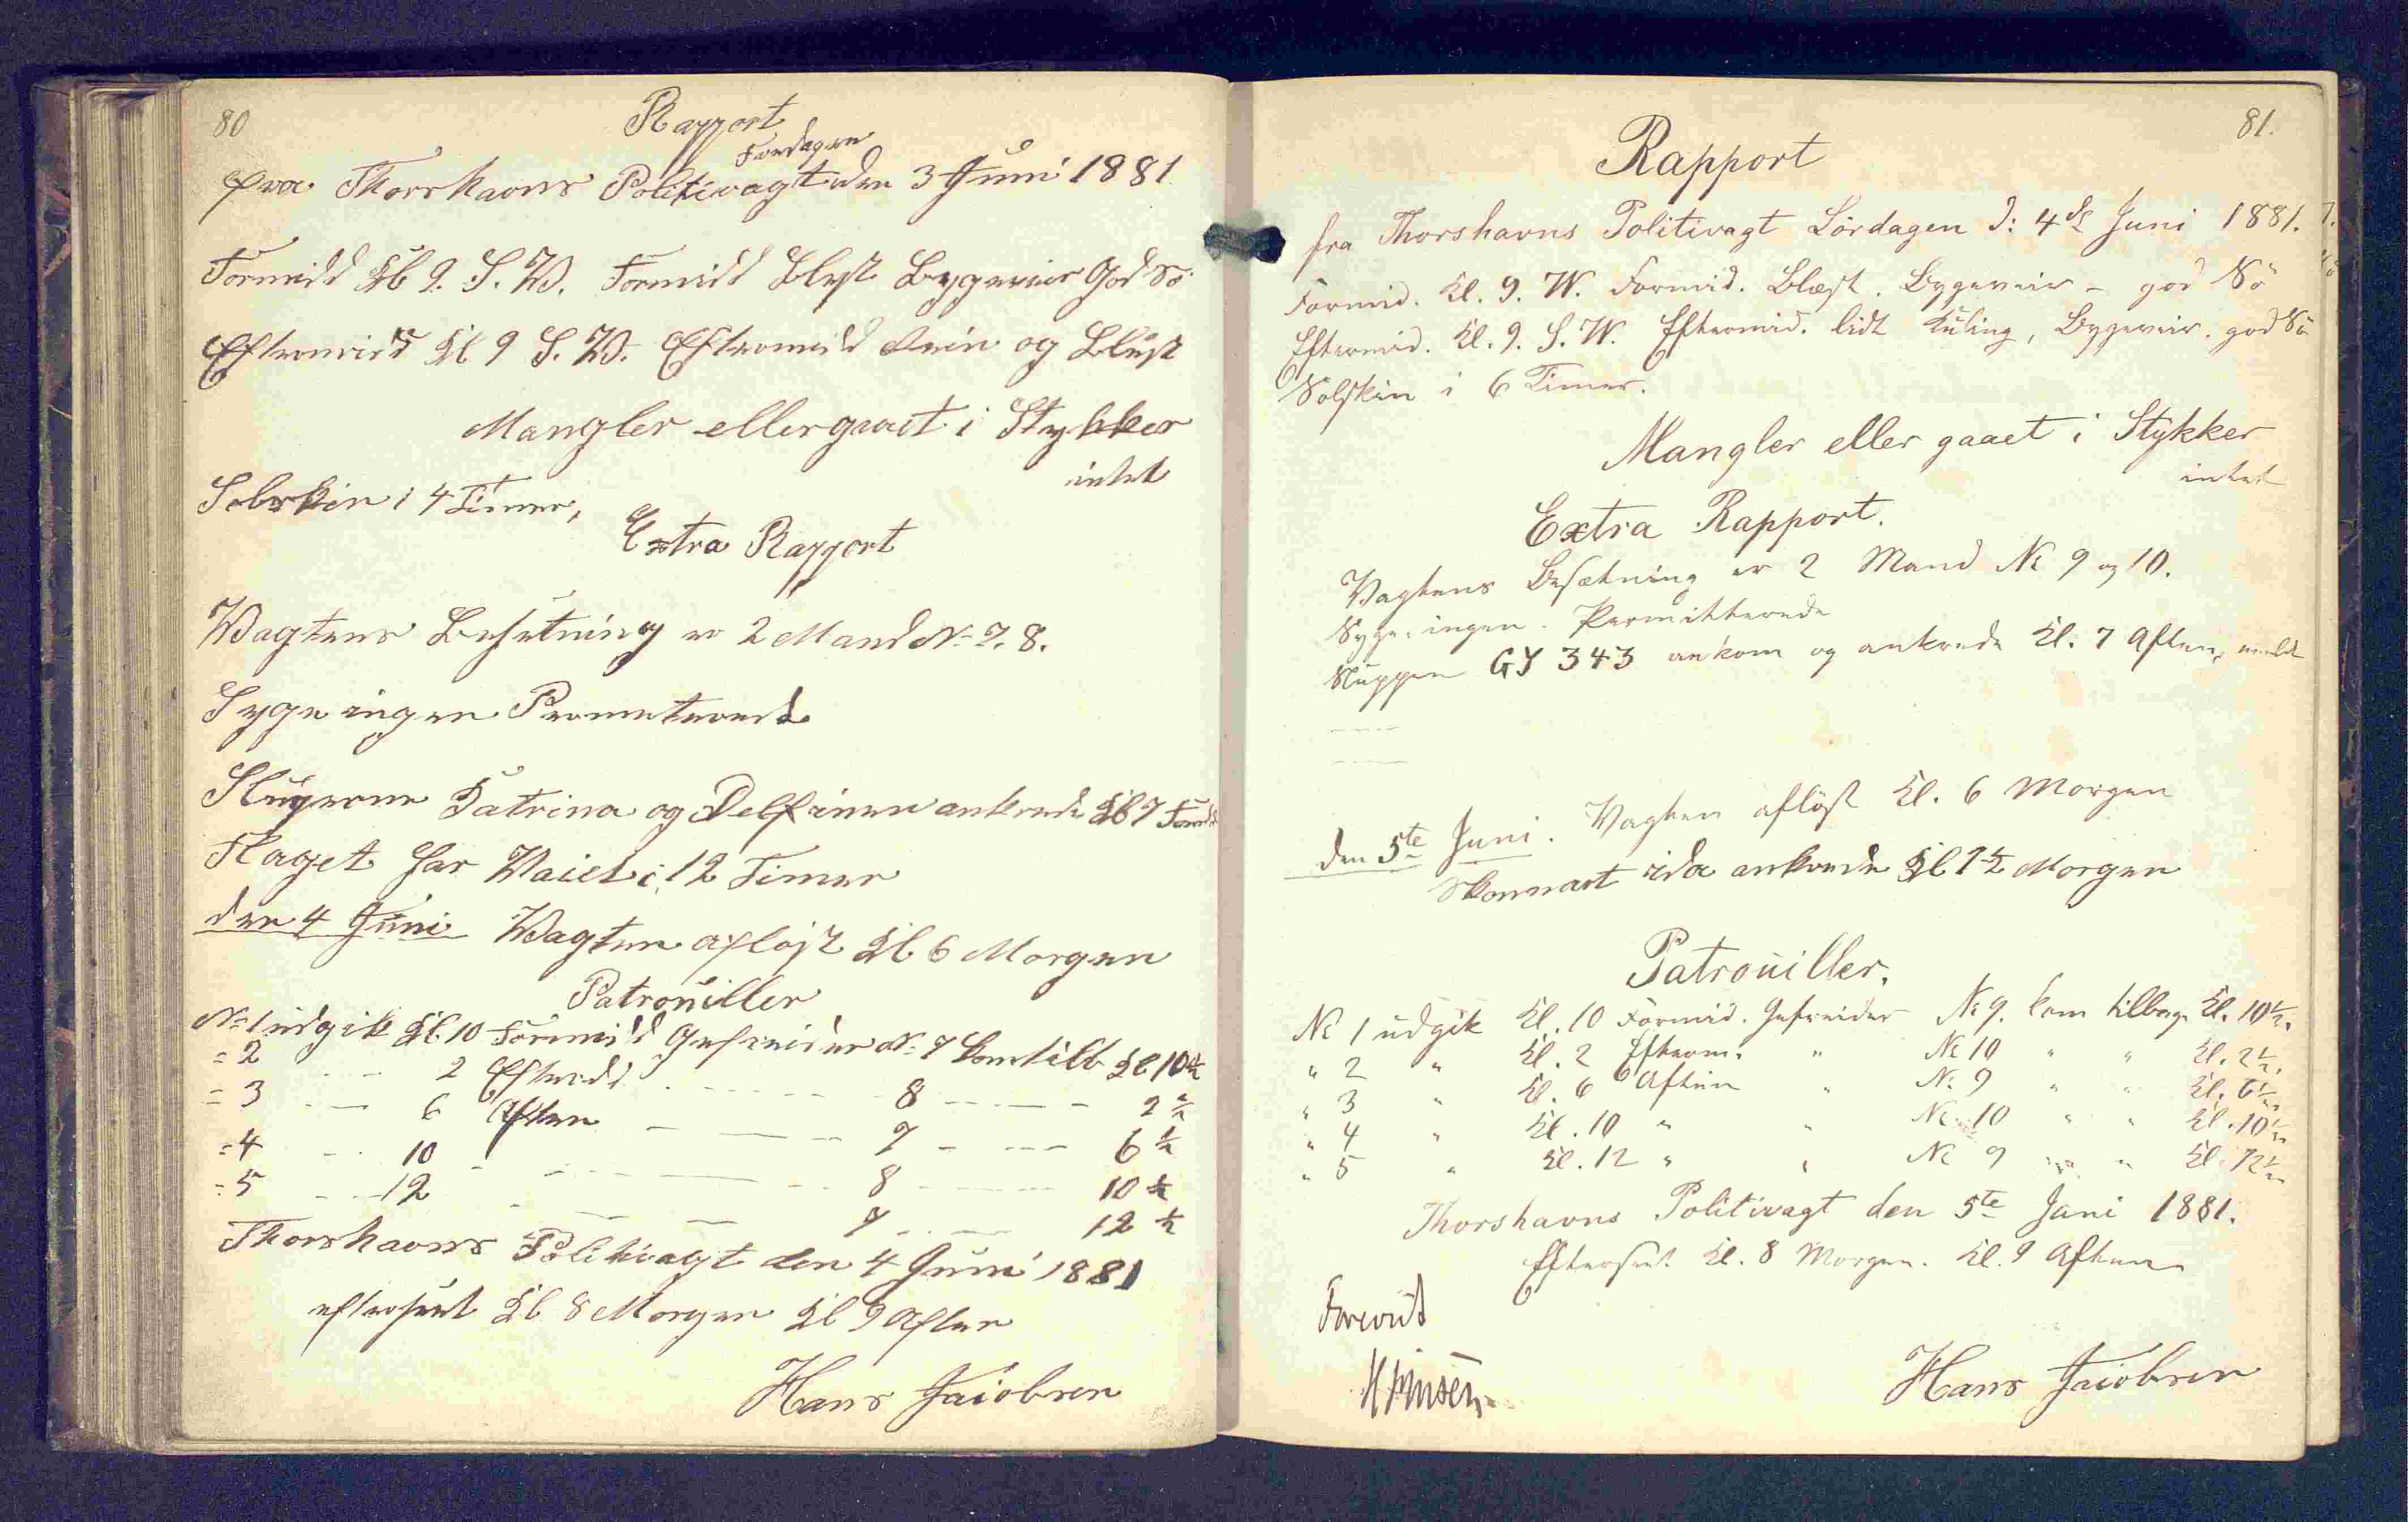 80
Rapport
Fredagen
fra Thorshavns Politivagt den 3 Juni 1881
Formidd Kl 9. S. W. Formidd Blæst Bygeveir God Sö
Eftermidd Kl 9 S. W. Eftermidd Rein og Blæst
Mangler eller gaaet i Stykker
intet
Solskin i 4 Timer,
Extra Rapport
Wagtens Besætning er 2 Mand No 7. 8.
Syge ingen Permeterede
Slupperne Katrina og Delfinen ankrede Kl 7 Formd
Flaget har Vaiet i 12 Timer
den 4 Juni Wagten afløst Kl 6 Morgen
Patrouiller
No 1 udgik Kl 10 Formidd Gefreider No 7 kom tilb Kl 10 1/2
= 2 - - 2 Eftmidd - - - 8 - - - 2 1/2
= 3 - - 6 Aften - - - 7 - - - 6 1/2
= 4 - - 10 - - - 8 - - - 10 1/2
= 5 - - 12 - - - 7 - - - 12 1/2
Thorshavns Politivagt den 4 Juni 1881
efterseet Kl 8 Morgen Kl 9 Aften
Hans Jacobsen
81.
Rapport
fra Thorshavns Politivagt Lördagen d: 4de Juni 1881.
Formid. Kl. 9. W. Formid. Blæst. Bygeveir - god Sö
Eftermid. Kl. 9. S. W. Eftermid. lidt Kuling, Bygeveir. god Sö
Solskin i 6 Timer.
Mangler eller gaaet i Stykker
intet
Extra Rapport.
Vagtens Besætning er 2 Mand No 9 og 10.
Syge: ingen. Permitterede
Sluppen GY 343 ankom og ankrede Kl. 7 Aften, meldt
den 5te Juni. Vagten aflöst Kl. 6 Morgen
Skonnart ida ankrede Kl 7 1/2 Morgen
Patrouiller.
No 1 udgik Kl. 10 Formid. Gefreider No 9. kom tilbage Kl. 10 1/2.
" 2 " Kl. 2 Efterm. " No 10 " " Kl. 2 1/2.
" 3 " Kl. 6 Aften " No 9 " " Kl. 6 1/2.
" 4 " Kl. 10 " " No 10 " " Kl. 10 1/2.
" 5 " Kl. 12 " " No 9 " " Kl. 12 1/2.
Thorshavns Politivagt den 5te Juni 1881.
Efterseet Kl. 8 Morgen. Kl. 9 Aften
Forevist
Hans Jacobsen